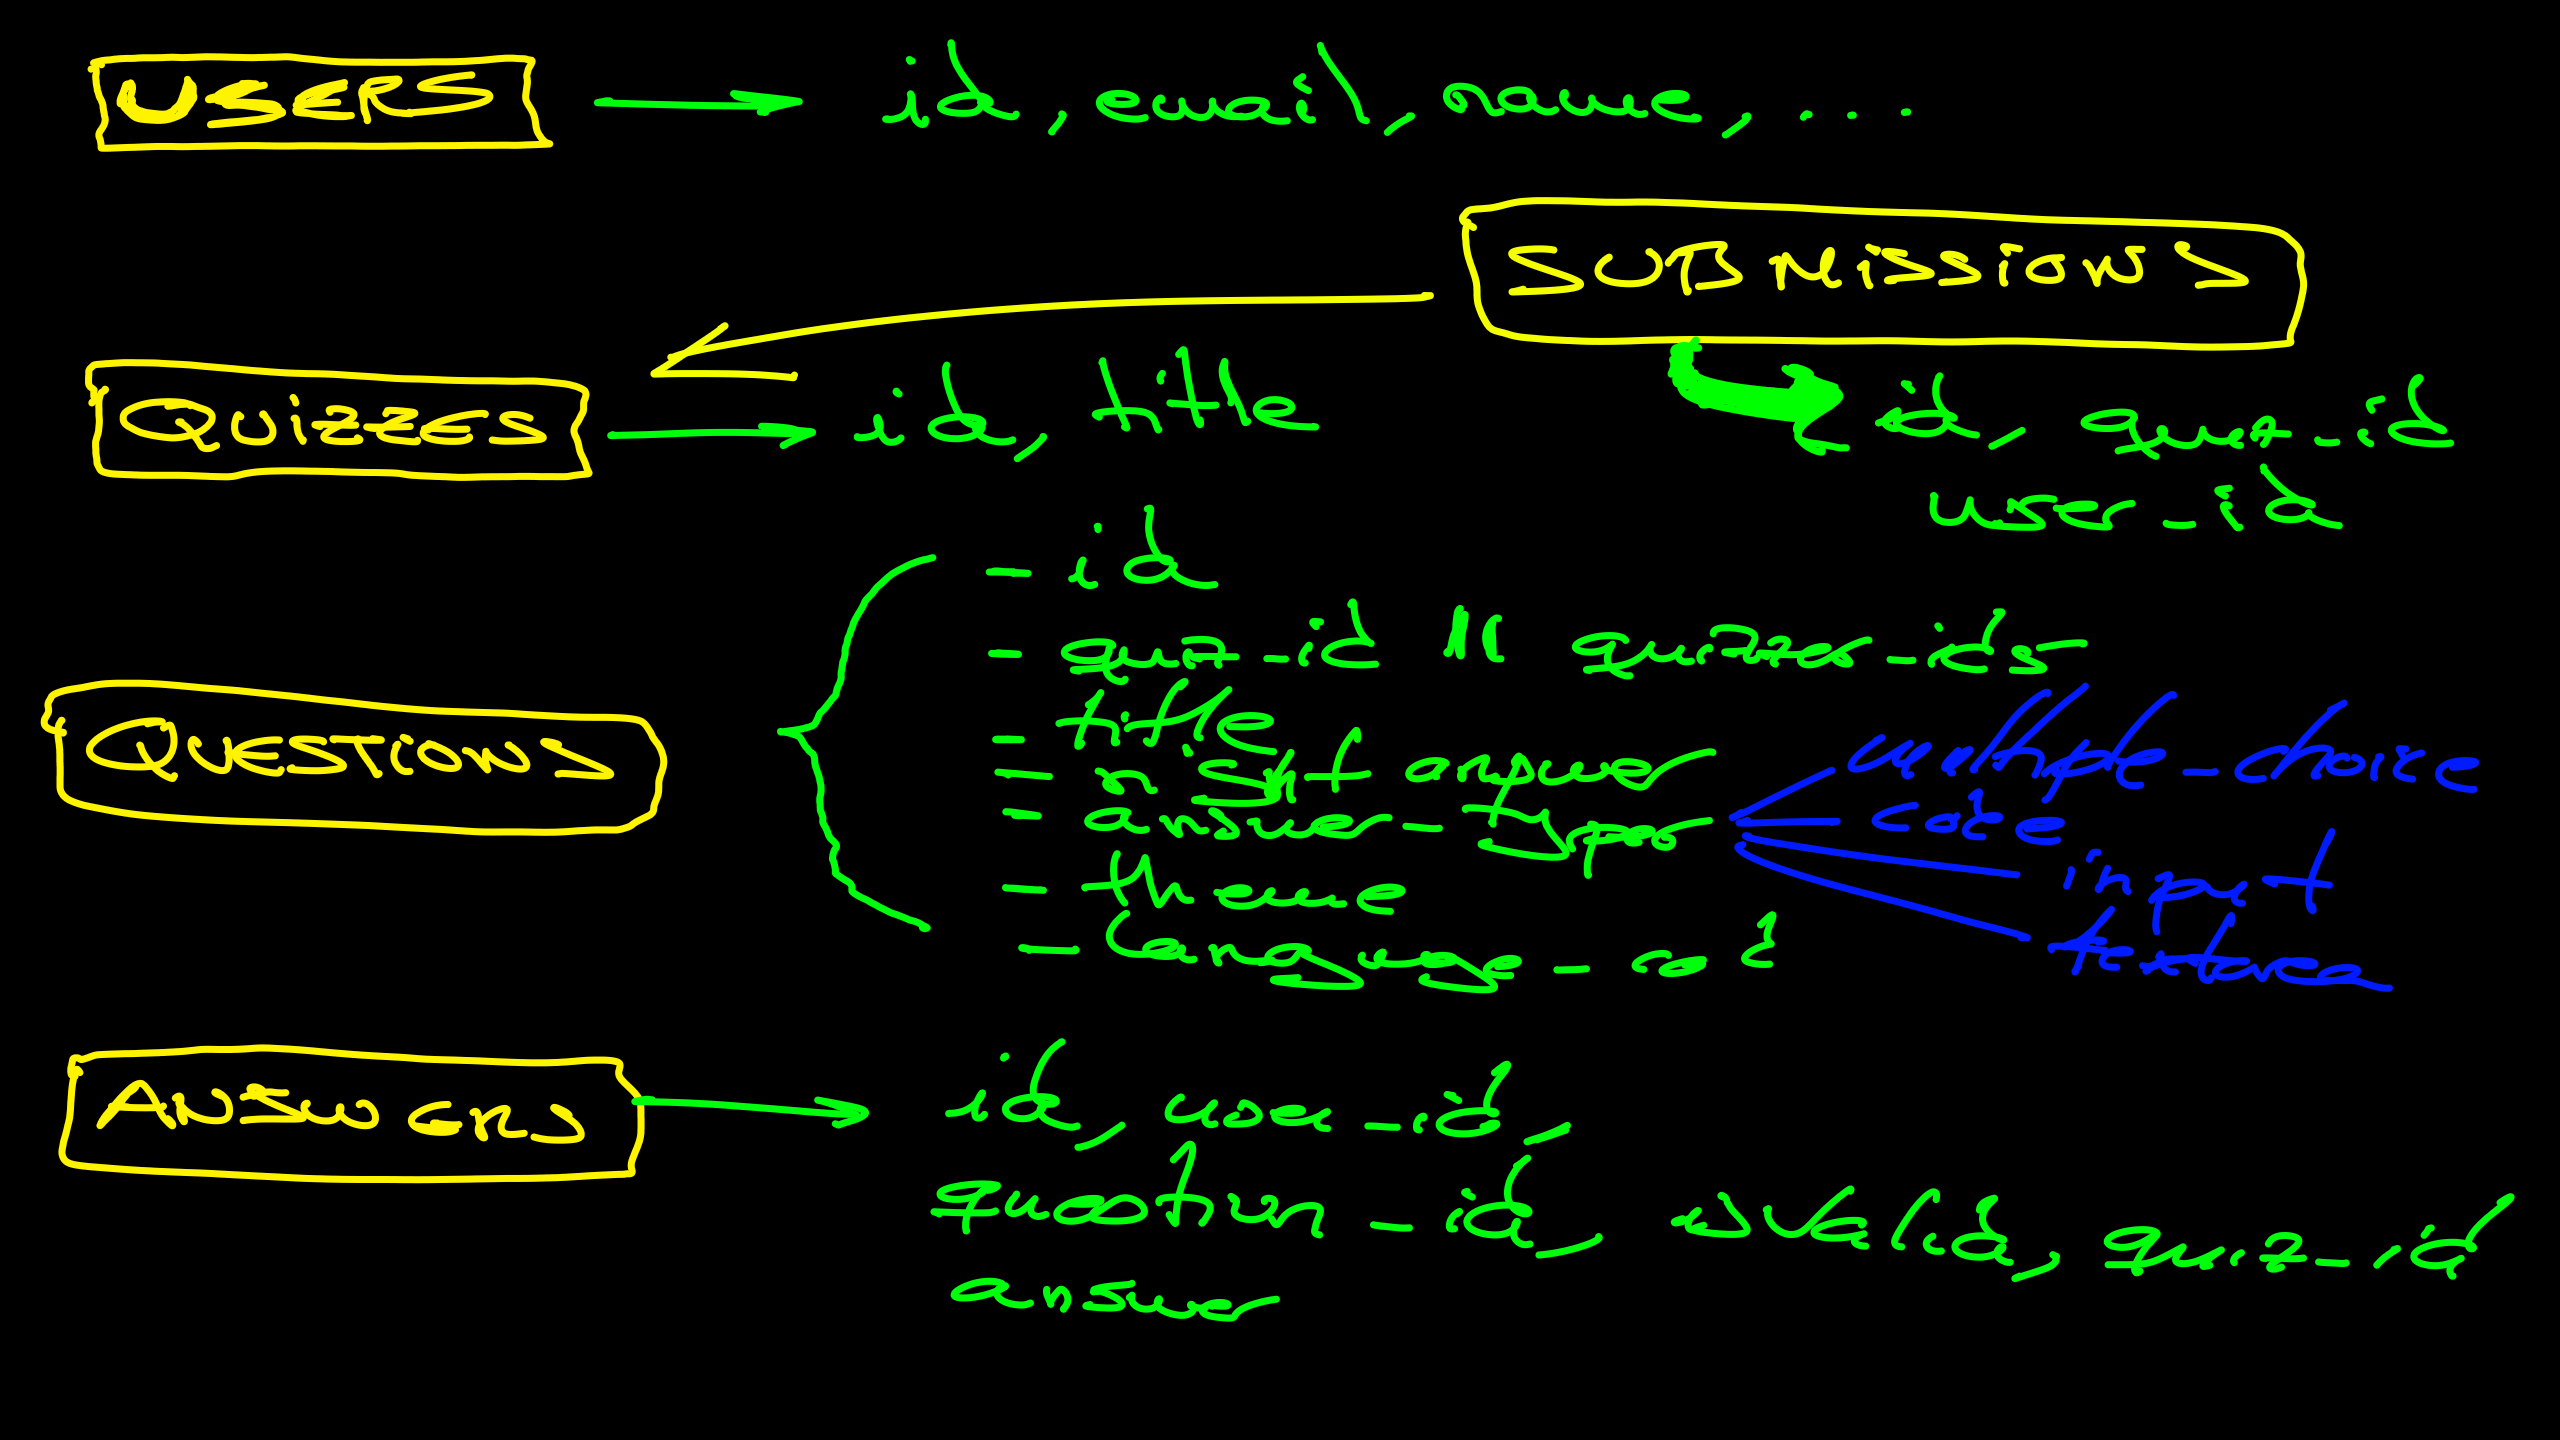 USERS
id, email, name, ...
SUBMISSIONS
QUIZZES
id, title
id, quiz_id
user_id
- id
- quiz_id || quizzes_ids
- title
- right answer
- answer_type
- theme
- language_cod
QUESTIONS
multiple_choice
code
input
textarea
ANSWERS
id, user_id,
question_id, isValid, quiz_id
answer